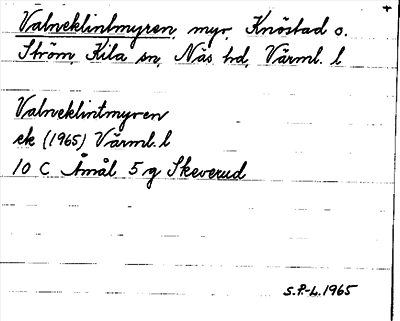 Valneklintmyren, myr, Knöstad o.
Ström, Kila sn, Näs hd, Värml. l
Valneklintmyren
ek (1965) Värml. l
10 C Åmål 5 g Skeverud
S.P.-L. 1965